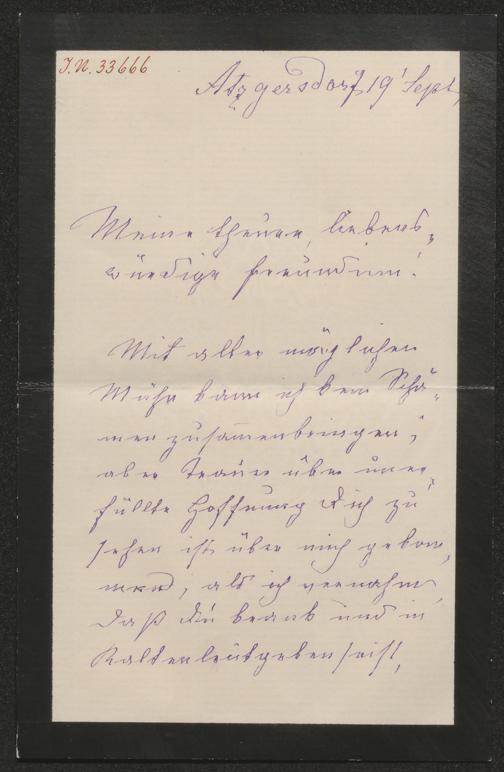 J.N. 33666
Atzgersdorf, 19' Sept,
Meine theure, liebens„
würdige Freundinn!
Mit aller möglichen
Mühe kann ich kein Schä„
men zusammenbringen;
aber Trauer über uner„
füllte Hoffnung Dich zu
sehen ist über mich gekom„
men, als ich vernahm
daß Du krank und in
Kaltenleutgeben seist,